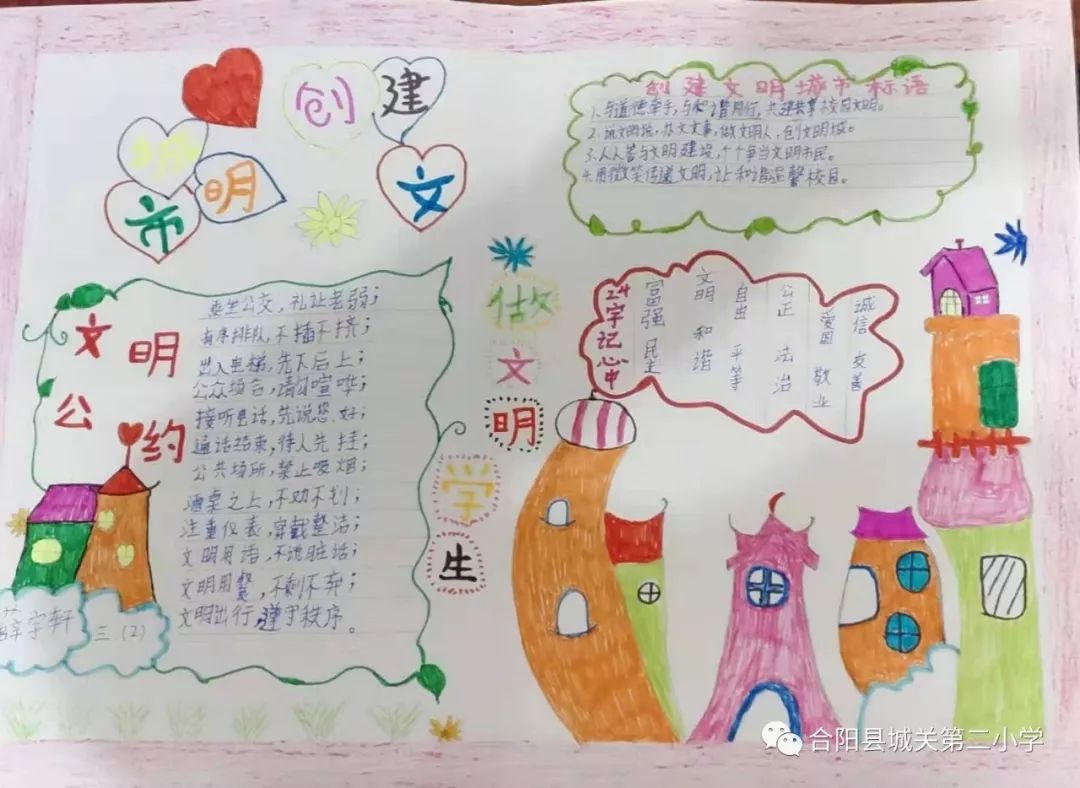 创建文明城市
创建文明城市标语
1、与道德牵手，与和谐同行，共建共享校园文明。
2、说文明话，办文文事，做文明人，创文明城。
3、人人参与文明建设，个个争当文明市民。
4、用微笑传递文明，让和谐温馨校园。
文明公约
乘坐公交，礼让老弱；
有序排队，不插不挤；
出入电梯，先下后上；
公众场合，请勿喧哗；
接听电话，先说您好；
通话结束，待人先挂；
公共场所，禁止吸烟；
酒桌之上，不劝不划；
注重仪表，穿戴整洁；
文明用语，不说脏话；
文明用餐，不剩不弃；
文明出行，遵守秩序。
宇轩
三（2）
做文明学生
24字记心中
富强 民主
文明 和谐
自由 平等
公正 法治
爱国 敬业
诚信 友善
合阳县城关第二小学